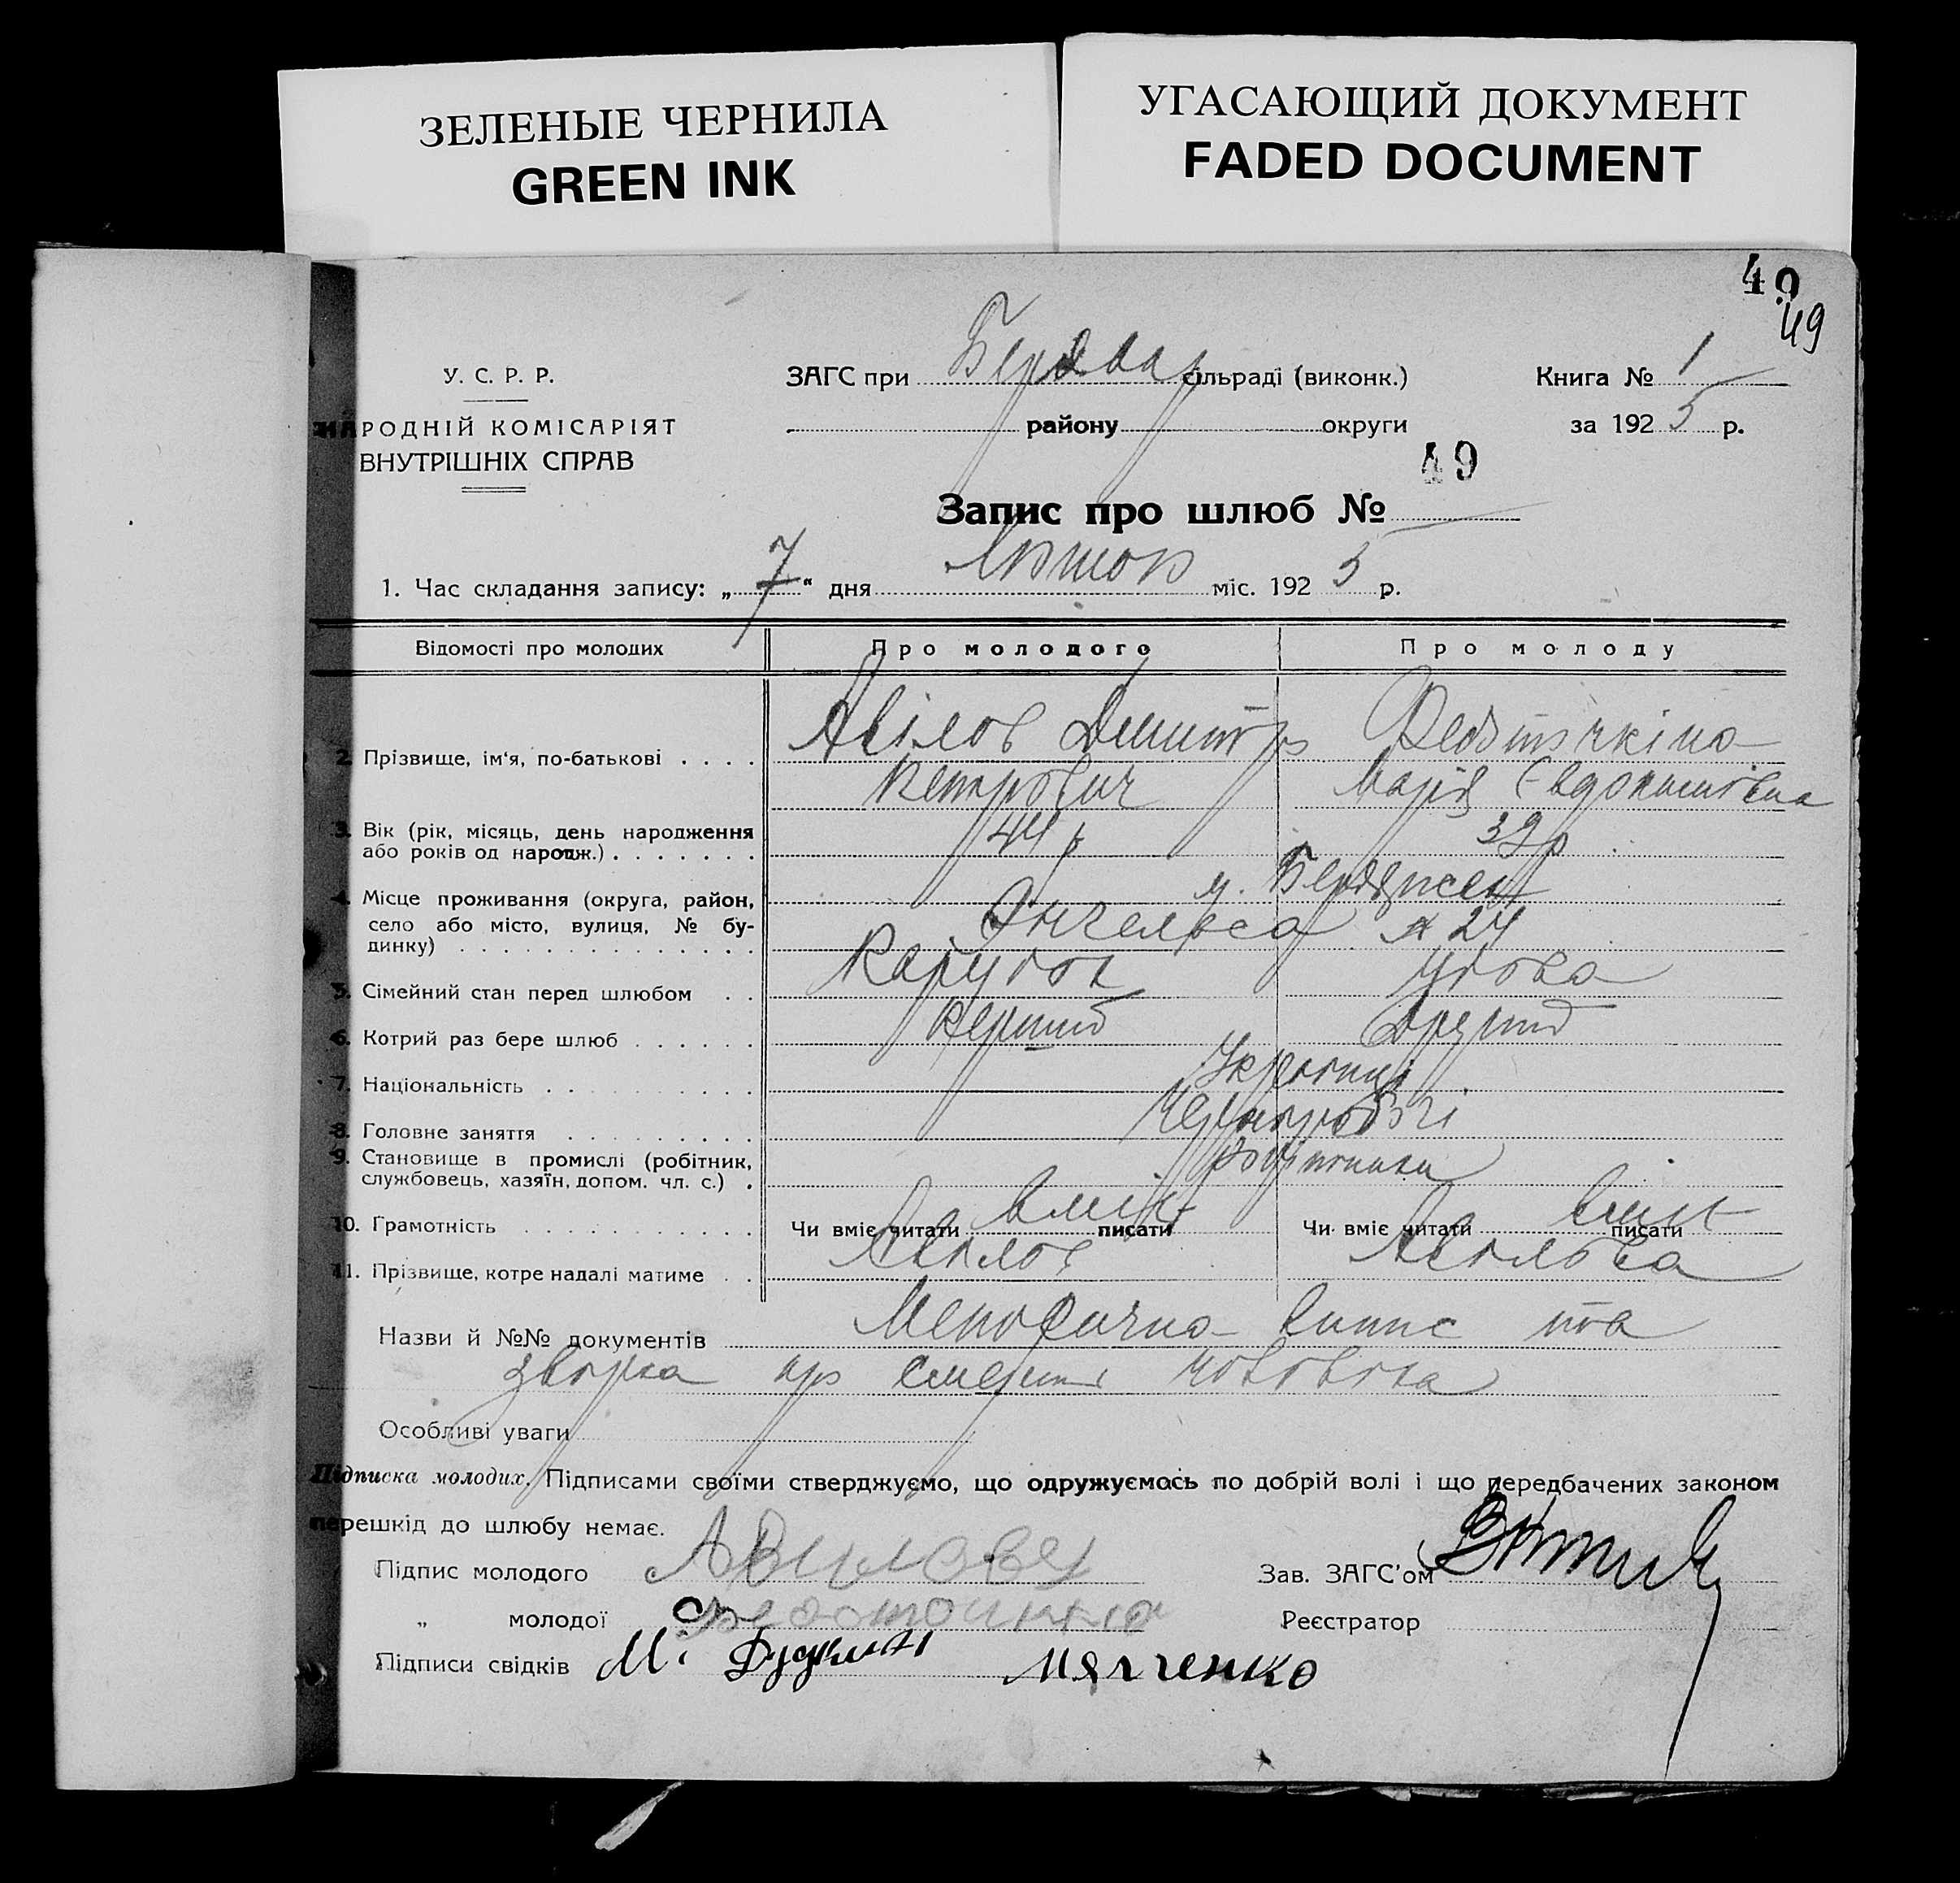 ЗЕЛЕНЫЕ ЧЕРНИЛА
GREEN INK
УГАСАЮЩИЙ ДОКУМЕНТ
FADED DOCUMENT
49
49
У. С. Р. Р.
НАРОДНІЙ КОМІСАРІЯТ
ВНУТРІШНІХ СПРАВ
ЗАГС при сільраді (виконк.)
району округи
Книга № 1
за 1925 р.
49
Запис про шлюб №
1. Час складання запису: „7“ дня міс. 1925 р.
Відомості про молодих Про молодого Про молоду
2. Прізвище, ім'я, по-батькові . . . . Авілов Дмитро
Петрович Марія Євдокимівна
3. Вік (рік, місяць, день народження
або років од народж.) . . . . . . . 44 р 39 р
4. Місце проживання (округа, район,
село або місто, вулиця, № бу-
динку) . . . . . . . . . . . . . м. Бердянськ
Енгельса № 24
5. Сімейний стан перед шлюбом . . Парубок Удова
6. Котрий раз бере шлюб . . . . . . Перший Другий
7. Національність . . . . . . . . . Українці
8. Головне заняття . . . . . . . . . Чорноробочі
9. Становище в промислі (робітник,
службовець, хазяїн, допом. чл. с.) . робітники
10. Грамотність . . . . . . . . . . . Чи вміє читати вміє писати Чи вміє читати вміє писати
11. Прізвище, котре надалі матиме . . Авілов Авілова
Назви й №№ документів Метрична випис та
довідка про смерть чоловіка
Особливі уваги
Підписка молодих. Підписами своїми стверджуємо, що одружуємось по добрій волі і що передбачених законом
перешкід до шлюбу немає.
Підпис молодого Авилов
„ молодої
Підписи свідків М.
Зав. ЗАГС'ом
Реєстратор